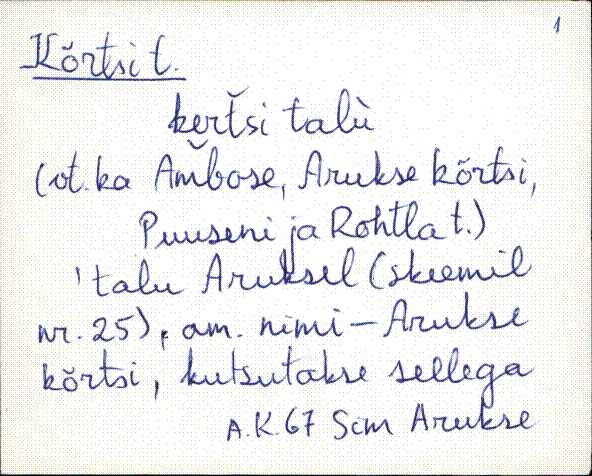 1
Kõrtsi t.
kertši talù
(vt. ka Ambose, Arukse kõrtsi,
Puuseni ja Rohtla t.)
'talu Aruksel (skeemil
nr. 25), am. nimi – Arukse
kõrtsi, kutsutakse sellega
A.K. 67 Sim Arukse